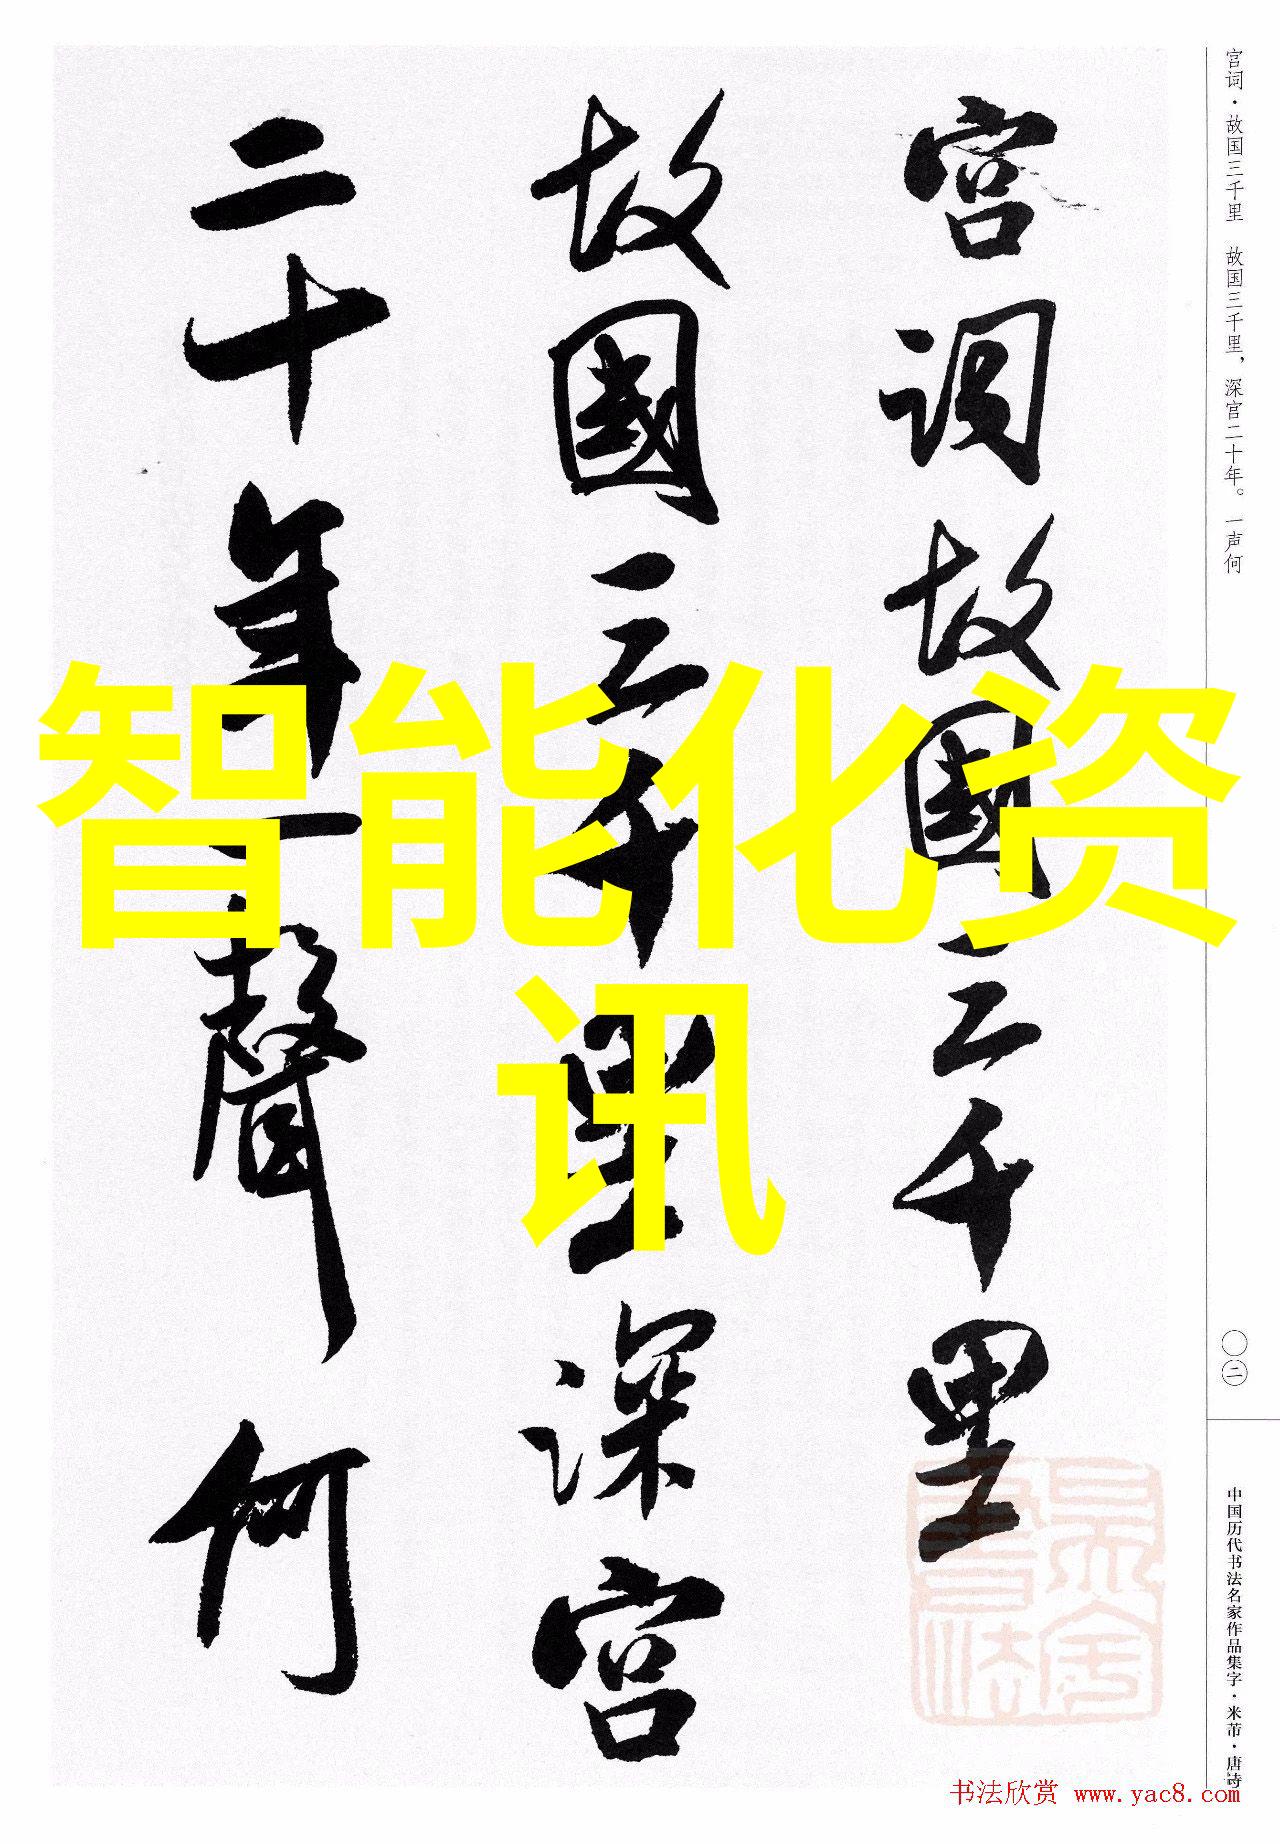 宫词·故国三千里　故国三千里，深宫二十年。一声何
宫词故國三千里
故國三千里深宫
二十年一聲何
智能化资
讯
〇二
中国历代书法名家作品集字·米芾·唐诗
书法欣赏 www.yac8.com